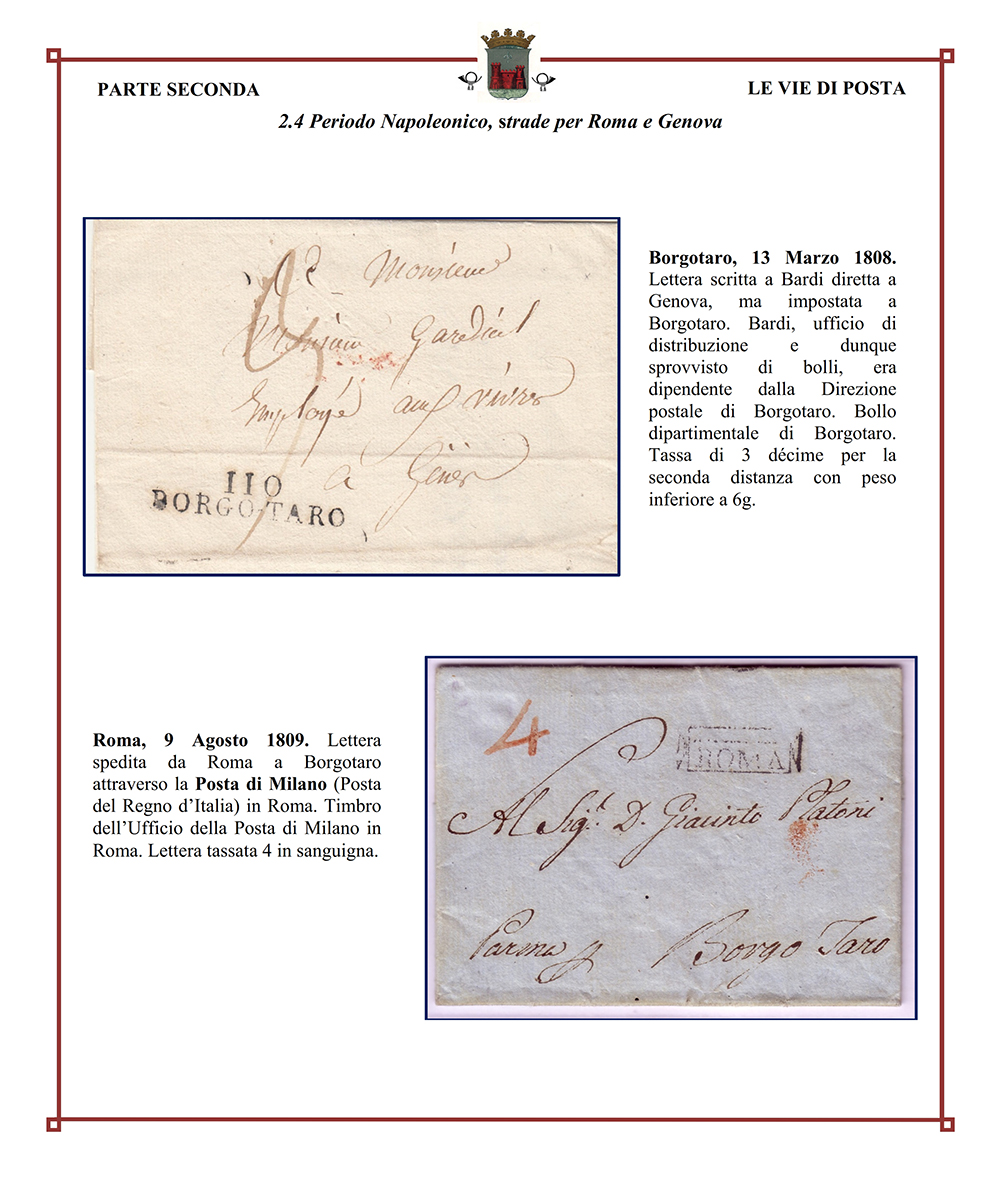 PARTE SECONDA
LE VIE DI POSTA
2.4 Periodo Napoleonico, strade per Roma e Genova
Monsieur
Monsieur Gardiel
Employé aux vivres
à Gènes
110
BORGO-TARO
Borgotaro, 13 Marzo 1808.
Lettera scritta a Bardi diretta a
Genova, ma impostata a
Borgotaro. Bardi, ufficio di
distribuzione e dunque
sprovvisto di bolli, era
dipendente dalla Direzione
postale di Borgotaro. Bollo
dipartimentale di Borgotaro.
Tassa di 3 décime per la
seconda distanza con peso
inferiore a 6g.
Roma, 9 Agosto 1809. Lettera
spedita da Roma a Borgotaro
attraverso la Posta di Milano (Posta
del Regno d’Italia) in Roma. Timbro
dell’Ufficio della Posta di Milano in
Roma. Lettera tassata 4 in sanguigna.
4
ROMA
Al Sig.r D. Giacinto Platoni
Parma Borgo Taro